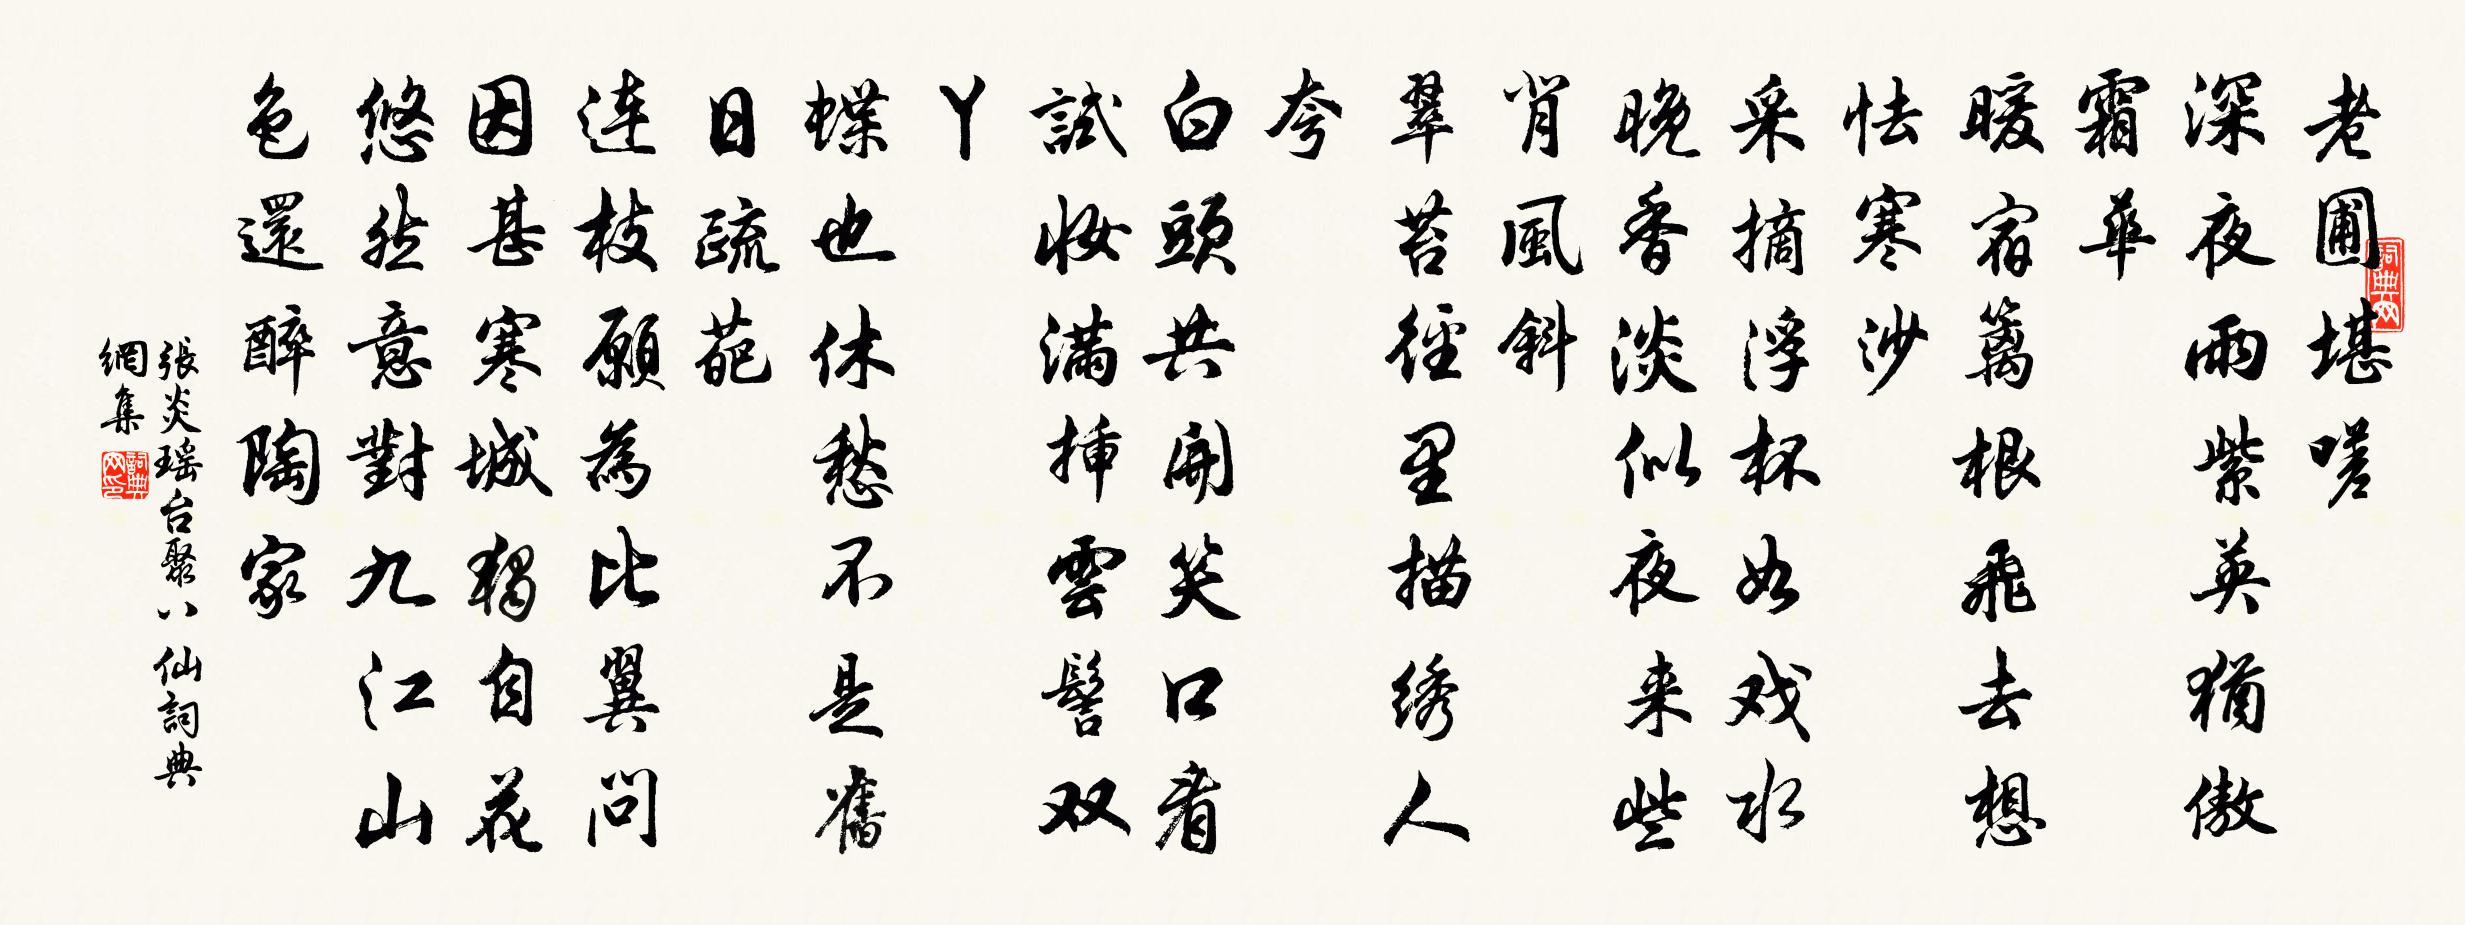 老圃堪嗟
深夜雨紫英猶傲
霜華
暖宿籬根飛去想
怯寒沙
采摘浮杯如戏水
晚香淡似夜来些
肖風斜
翠苔徑里描绣人
夸
白頭共開笑口看
試妆滿插雲髻双
丫
蝶也休愁不是舊
日疏葩
连枝願為比翼問
因甚寒城獨自花
悠然意對九江山
色還醉陶家
張炎瑶台聚八仙詞典
網集
詞典网
詞典网印